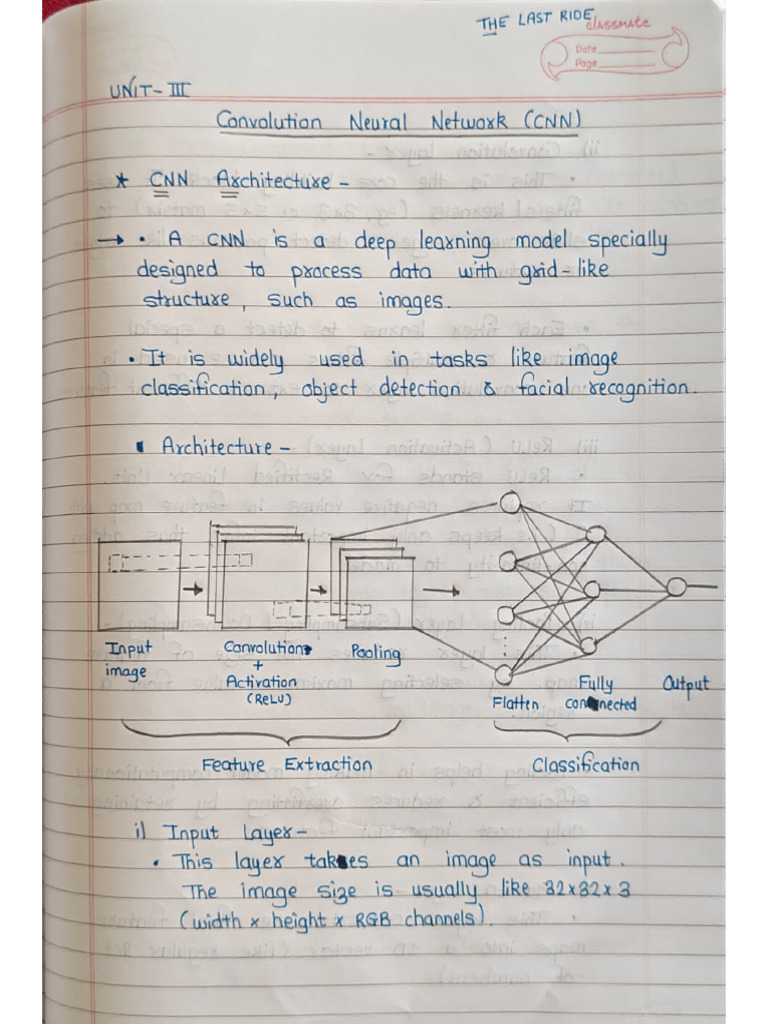 THE LAST RIDE
classmate
Date
Page
UNIT-III
Convolution Neural Network (CNN)
* CNN Architecture -
→ • A CNN is a deep learning model specially
designed to process data with grid-like
structure, such as images.
• It is widely used in tasks like image
classification, object detection & facial recognition.
▪ Architecture -
Input
image
Convolution
+
Activation
(ReLU)
Pooling
Flatten
Fully
connected
Output
Feature Extraction
Classification
i) Input Layer -
• This layer takes an image as input.
The image size is usually like 32x32x3
(width x height x RGB channels).